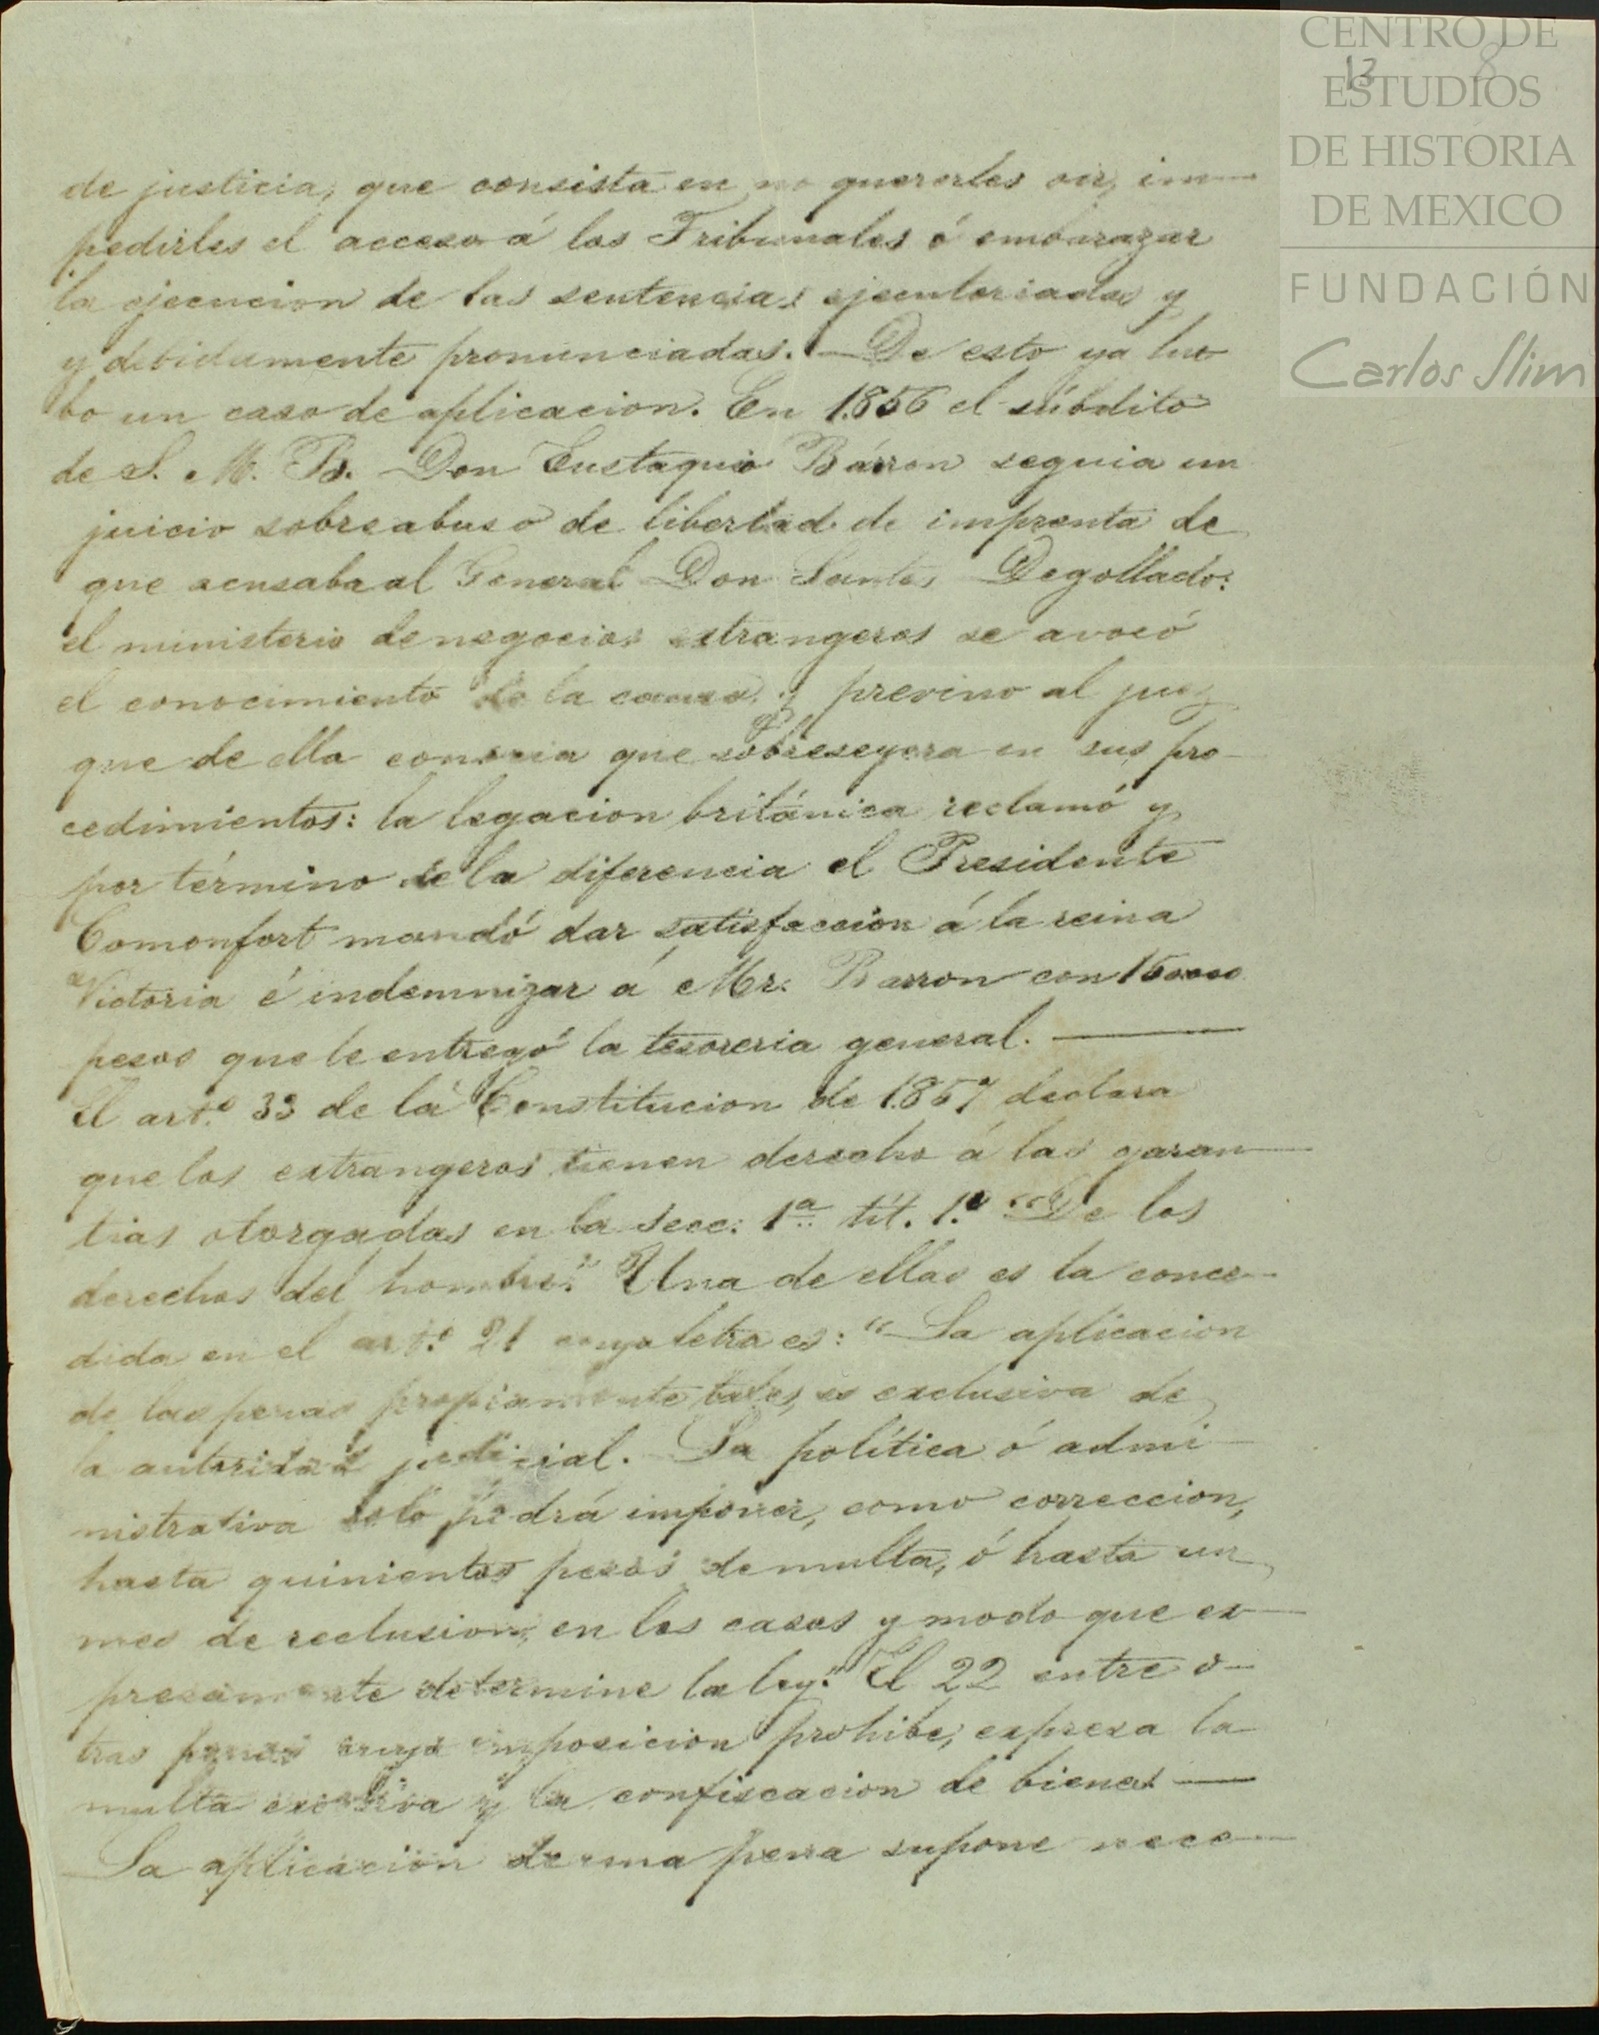 CENTRO DE
ESTUDIOS
DE HISTORIA
DE MEXICO
FUNDACIÓN
Carlos Slim
13 8
de justicia, que consista en no quererles oir, im-
pedirles el acceso á los Tribunales ó embarazar
la ejecucion de las sentencias ejecutoriadas y
y debidamente pronunciadas. — De esto ya hu-
bo un caso de aplicacion. En 1.856 el súbdito
de S. M. B. Don Eustaquio Bárron seguia un
juicio sobre abuso de libertad de imprenta de
que acusaba al General Don Santos Degollado:
el ministerio de negocios estrangeros se avocó
el conocimiento de la causa y previno al juez
que de ella conocia que sobreseyera en sus pro-
cedimientos: la legacion británica reclamó y
por término de la diferencia el Presidente
Comonfort mandó dar satisfaccion á la reina
Victoria é indemnizar á Mr. Barron con
pesos que le entregó la tesoreria general. —
El art.º 33 de la Constitucion de 1.857 declara
que los extrangeros tienen derecho á las garan-
tias otorgadas en la Secc. 1ª tít. 1.º "De los
derechos del hombre." Una de ellas es la conce-
dida en el art.º 21 cuya letra es: "La aplicacion
de las penas propiamente tales, es exclusiva de
la autoridad judicial. La política ó admi-
nistrativa solo podrá imponer, como correccion,
hasta quinientos pesos de multa, ó hasta un
mes de reclusion, en los casos y modo que ex-
presamente determine la ley." El 22 entre o-
tras penas cuya imposicion prohibe, expresa la
multa excesiva y la confiscacion de bienes —
La aplicacion de una pena supone nece-